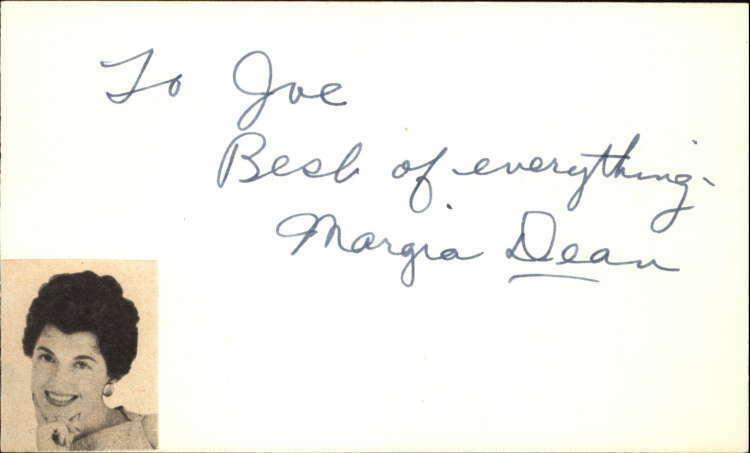 To Joe
Best of everything.
Margia Dean